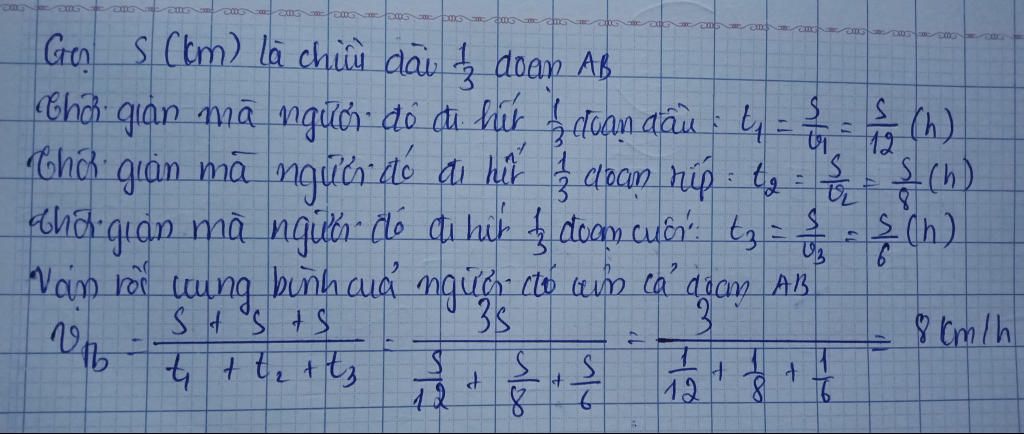 Gọi S (km) là chiều dài 1/3 đoạn AB
Thời gian mà người đó đi hết 1/3 đoạn đầu: t₁ = S/v₁ = S/12 (h)
Thời gian mà người đó đi hết 1/3 đoạn tiếp: t₂ = S/v₂ = S/8 (h)
Thời gian mà người đó đi hết 1/3 đoạn cuối: t₃ = S/v₃ = S/6 (h)
Vận tốc trung bình của người đó trên cả đoạn AB
v_tb = (S + S + S)/(t₁ + t₂ + t₃) = 3S/(S/12 + S/8 + S/6) = 3/(1/12 + 1/8 + 1/6) = 8 km/h